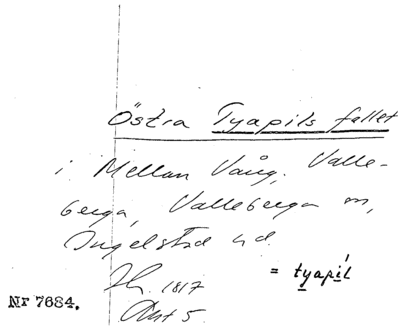 Östra Tyapils fallet
i Mellan Vång, Valle-
berga, Valleberga sn,
Ingelstad hd.
1817
= tyapil
Akt 5.
Nr 7684.